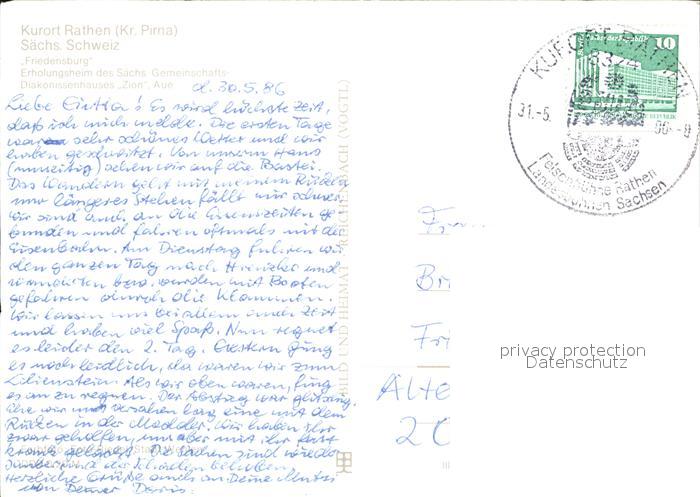 Kurort Rathen (Kr. Pirna)
Sächs. Schweiz
„Friedensburg"
Erholungsheim des Sächs. Gemeinschafts-
Diakonissenhauses „Zion", Aue
d. 30.5.86
Liebe Es wird höchste Zeit,
daß ich mich melde. Die ersten Tage
war sehr schönes Wetter und wir
haben geschwitzt. Von unserm Haus
sehen wir auf die Bastei.
Das Wandern geht mit meinem Rücken
nur längeres Stehen fällt mir schwer.
Wir sind auch an die Essenszeiten ge-
bunden und fahren oftmals mit der
Eisenbahn. Am Dienstag fuhren wir
den ganzen Tag nach und
bzw. wurden mit Booten
gefahren durch die Klammen.
Wir lassen uns bei allem auch Zeit
und haben viel Spaß. Nun regnet
es leider den 2. Tag. Gestern ging
es noch leidlich, da waren wir zum
Lilienstein. Als wir oben waren, fing
es an zu regnen. Der Abstieg war
Ehe wir uns versahen lag eine mit dem
Rücken in der Wir haben ihr
zwar geholfen, aber mit ihr fast
gelacht. Die Sachen sind wieder
sauber und der
Herzliche Grüße auch an Deine Mutti
von Deiner Doris.
BILD UND HEIMAT REICHENBACH (VOGTL)
10
KURORT RATHEN
8324
31.-5.
Felsenbühne Rathen
Landesbühnen Sachsen
Br
Fri
Alte
privacy protection
Datenschutz